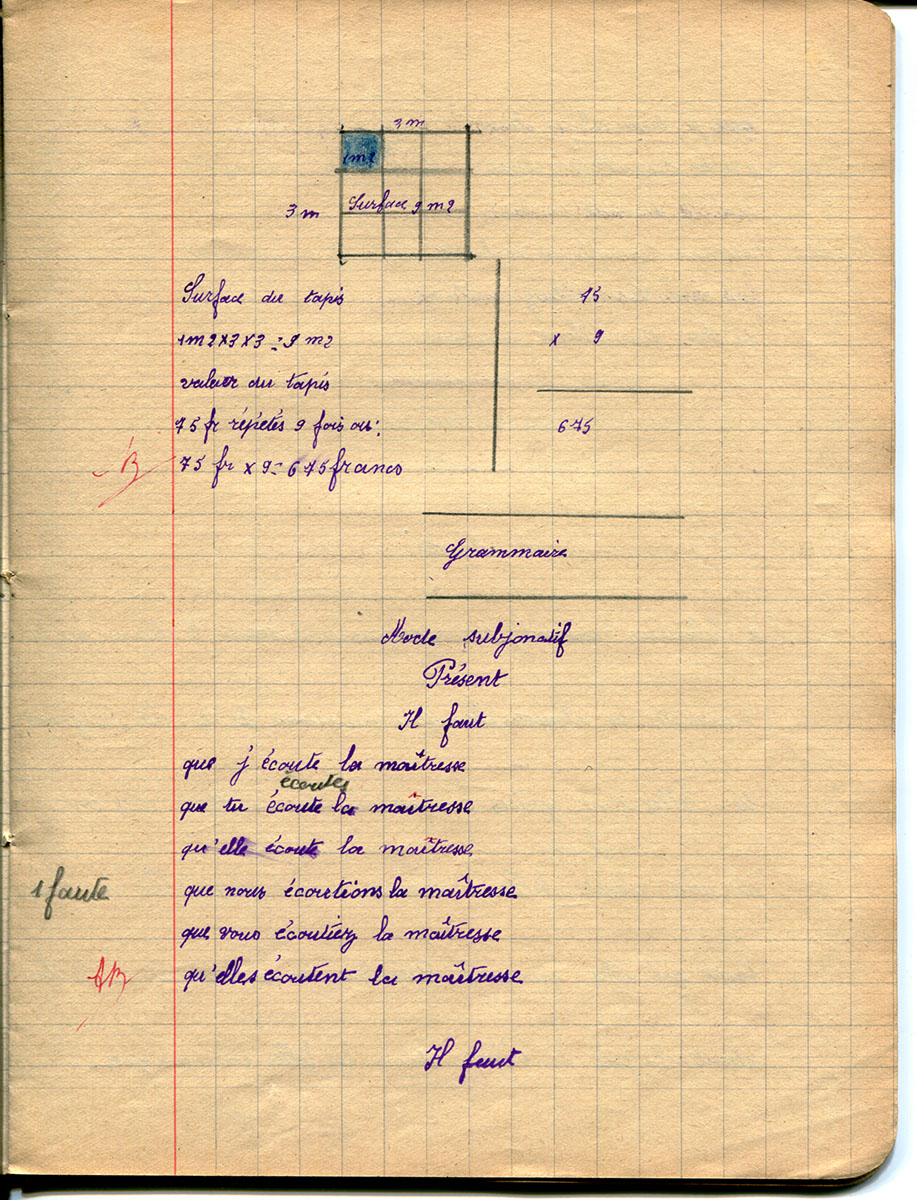 3 m
1m2
3 m
Surface 9 m2
Surface du tapis
1m2x3x3=9 m2
valeur du tapis
75 fr répétés 9 fois ou:
75 fr x 9= 675 francs
75
x 9
675
B
Grammaire
Mode subjonctif
Présent
Il faut
que j'écoute la maîtresse
écoutes
que tu écoute la maîtresse
qu'elle écoute la maîtresse
1 faute
que nous écoutions la maîtresse
que vous écoutiez la maîtresse
AB
qu'elles écoutent la maîtresse
Il faut